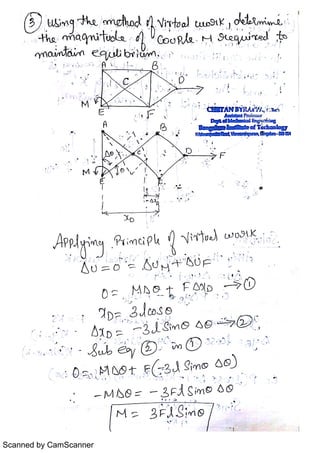 ③ Using the method of Virtual work, determine
the magnitude of Couple M required to
maintain equilibrium.
A B
C D
M
E F
CHETAN
Assistant Professor
Dept. of Mechanical Engineering
Bangalore Institute of Technology
A
B
Δθ
C
D F
M
E
xD
Applying Principle of Virtual work
ΔU = 0 = ΔUM + ΔUF
0 = MΔθ + FΔxD → ①
xD = 3lcosθ
ΔxD = -3l Sinθ Δθ → ②
Sub eq ② in ①
0 = MΔθ + F(-3l Sinθ Δθ)
-MΔθ = -3Fl Sinθ Δθ
M = 3Fl Sinθ
Scanned by CamScanner